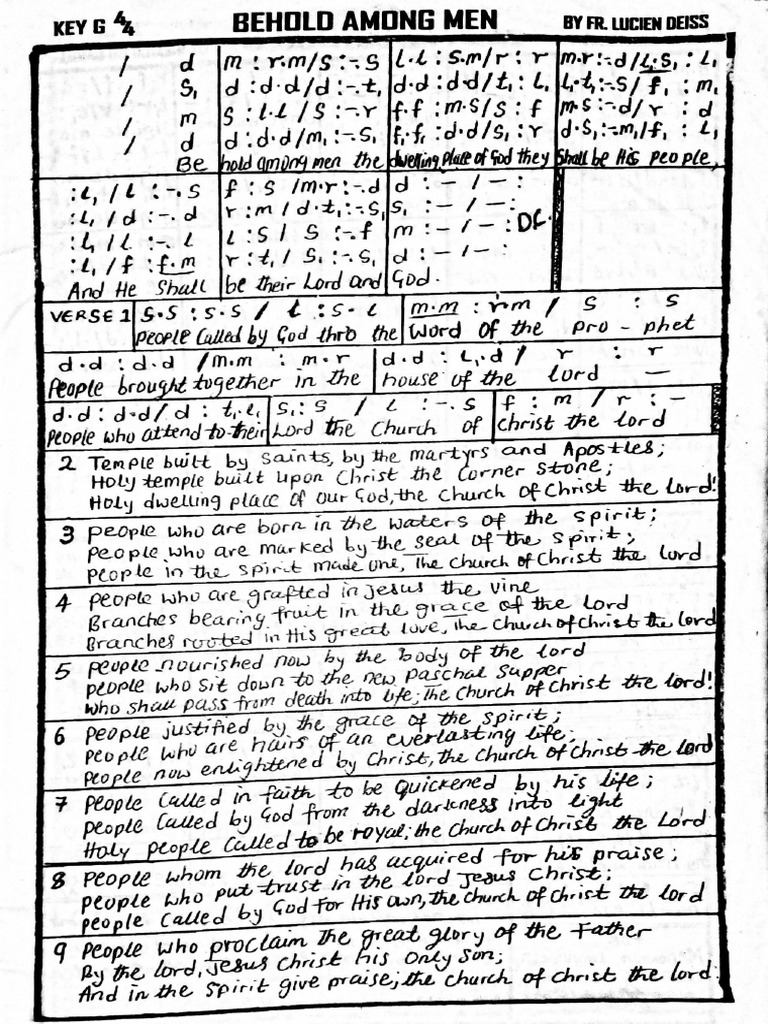 KEY G 4/4 BEHOLD AMONG MEN BY FR. LUCIEN DEISS
/ d m : r.m/S : -. S l.l : s.m/r : r m.r : -.d/l₁.S₁ : l₁
/ S₁ d : d.d/d : -. t₁ d.d : d.d/t₁ : l₁ l₁.t₁ : -.S/f₁ : m₁
/ m S : l.l/S : -. r f.f : m.s/S : f m.s : -.d/r : d
/ d d : d.d/m₁ : -. S₁ f₁.f₁ : d.d/S₁ : r d.S₁ : -.m₁/f₁ : l₁
Be hold among men the dwelling place of God they Shall be His people,
: l₁ / l : -. S f : s / m.r : -. d d : - / - :
: l₁ / d : -. d r : m / d.t₁ : -. S₁ S₁ : - / - :
: l₁ / l : -. l l : s / s : -. f m : - / - : DC.
: l₁ / f : f.m r : t₁ / S₁ : -. S₁ d : - / - :
And He Shall be their Lord and God.
VERSE 1 S.S : S.S / l : S.l m.m : r.m / S : S
people called by God thro the Word of the pro - phet
d.d : d.d / m.m : m.r d.d : l₁.d / r : r
People brought together in the house of the lord —
d.d : d.d / d : t₁.l₁ S₁ : S / l : -. S f : m / r : -
People who attend to their Lord the Church of christ the lord
2 Temple built by saints, by the martyrs and Apostles;
Holy temple built upon Christ the corner stone;
Holy dwelling place of our God, the church of Christ the Lord!
3 people who are born in the waters of the spirit;
people who are marked by the seal of the spirit;
people in the spirit made one, The church of Christ the lord
4 people who are grafted in Jesus the vine
Branches bearing fruit in the grace of the Lord
Branches rooted in His great love, The church of Christ the lord
5 people nourished now by the body of the lord
people who sit down to the new paschal supper
who shall pass from death into life; The church of Christ the lord!
6 people justified by the grace of the spirit;
people who are hairs of an everlasting life;
People now enlightened by Christ, the church of Christ the lord
7 people called in faith to be quickened by his life;
people called by God from the darkness into light
Holy people called to be royal; the church of Christ the Lord
8 people whom the lord has acquired for his praise;
people who put trust in the lord Jesus Christ;
people called by God for His own, the church of Christ the lord
9 people who proclaim the great glory of the Father
By the lord, Jesus Christ his only son;
And in the spirit give praise; the church of christ the lord.